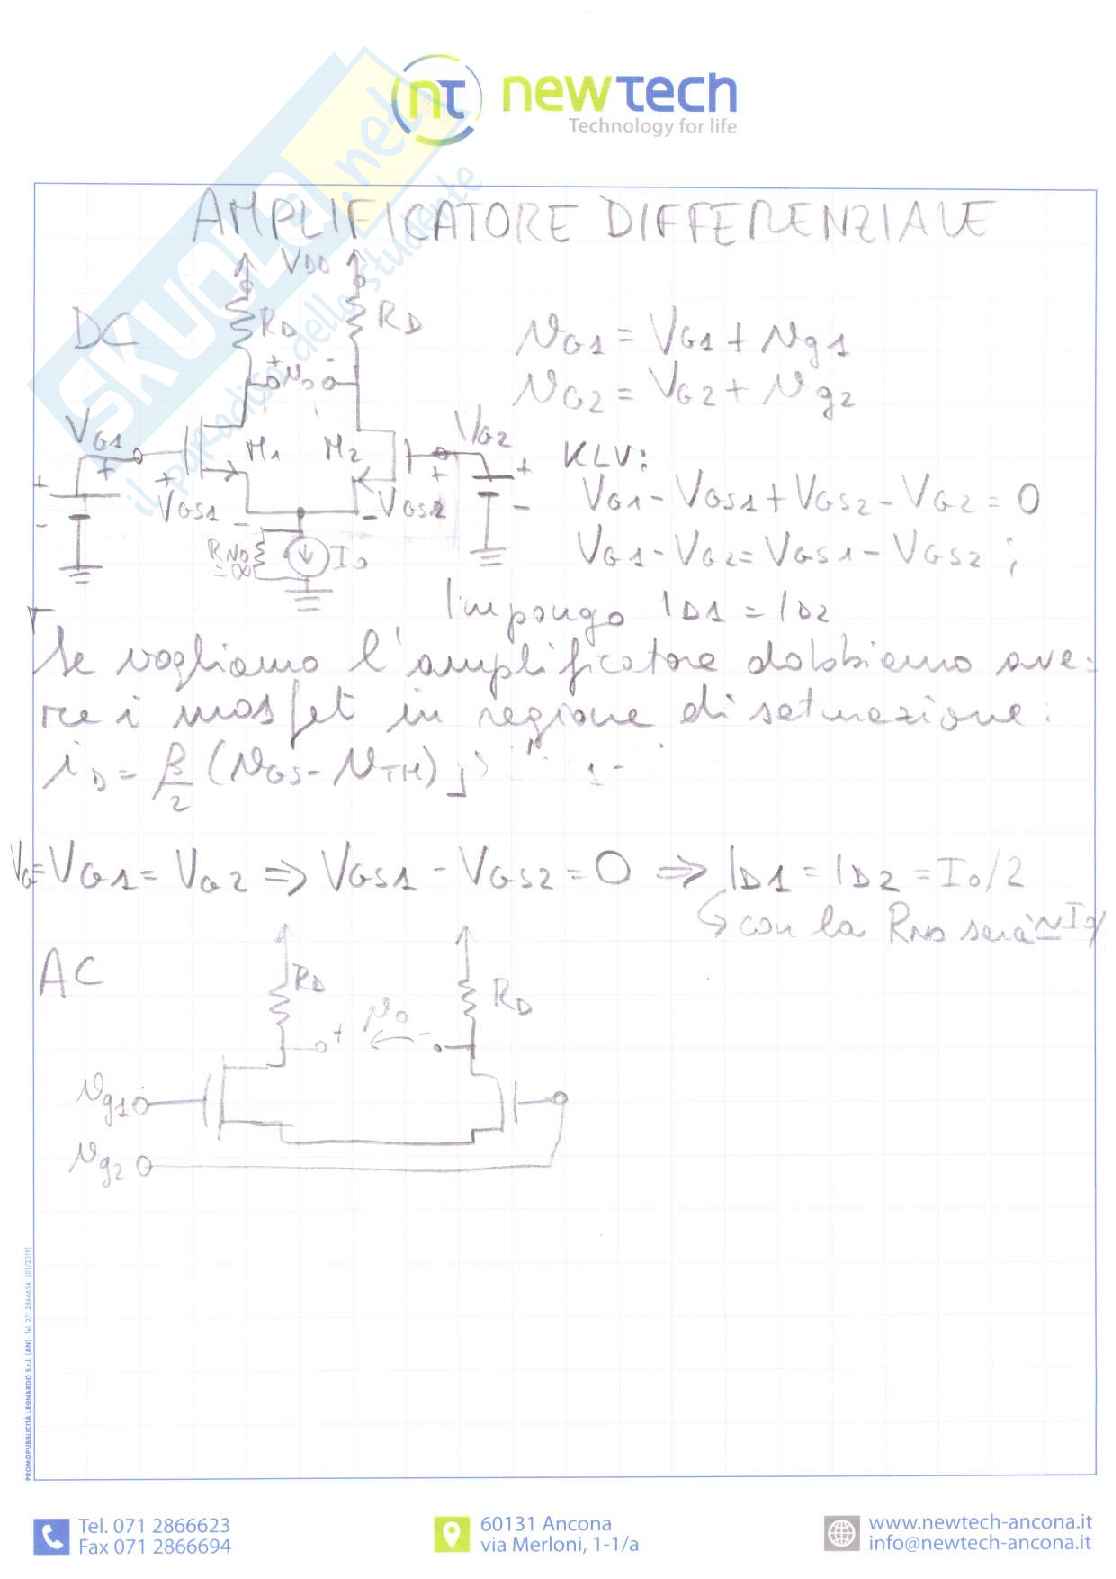 newtech
Technology for life
SKUOLA.net
il paradiso dello studente
AMPLIFICATORE DIFFERENZIALE
VDD
DC
RD
RD
+ vo -
vG1 = VG1 + vg1
vG2 = VG2 + vg2
VG1
M1
M2
VG2
KLV:
+
+
VGS1
-
-
VGS2
+
VG1 - VGS1 + VGS2 - VG2 = 0
RNO
≃∞
Io
VG1 - VG2 = VGS1 - VGS2 ;
Impongo ID1 = ID2
Se vogliamo l'amplificatore dobbiamo ave-
re i mosfet in regione di saturazione:
iD = β/2 (vGS - VTH)
VG = VG1 = VG2 ⇒ VGS1 - VGS2 = 0 ⇒ ID1 = ID2 = Io/2
↳ con la RNO sarà ≃ Io/
AC
RD
RD
+
vo
-
vg1
vg2
PROMOPUBBLICITÀ LEONARDO S.r.l. (AN)
Tel. 071 2866623
Fax 071 2866694
60131 Ancona
via Merloni, 1-1/a
www.newtech-ancona.it
info@newtech-ancona.it